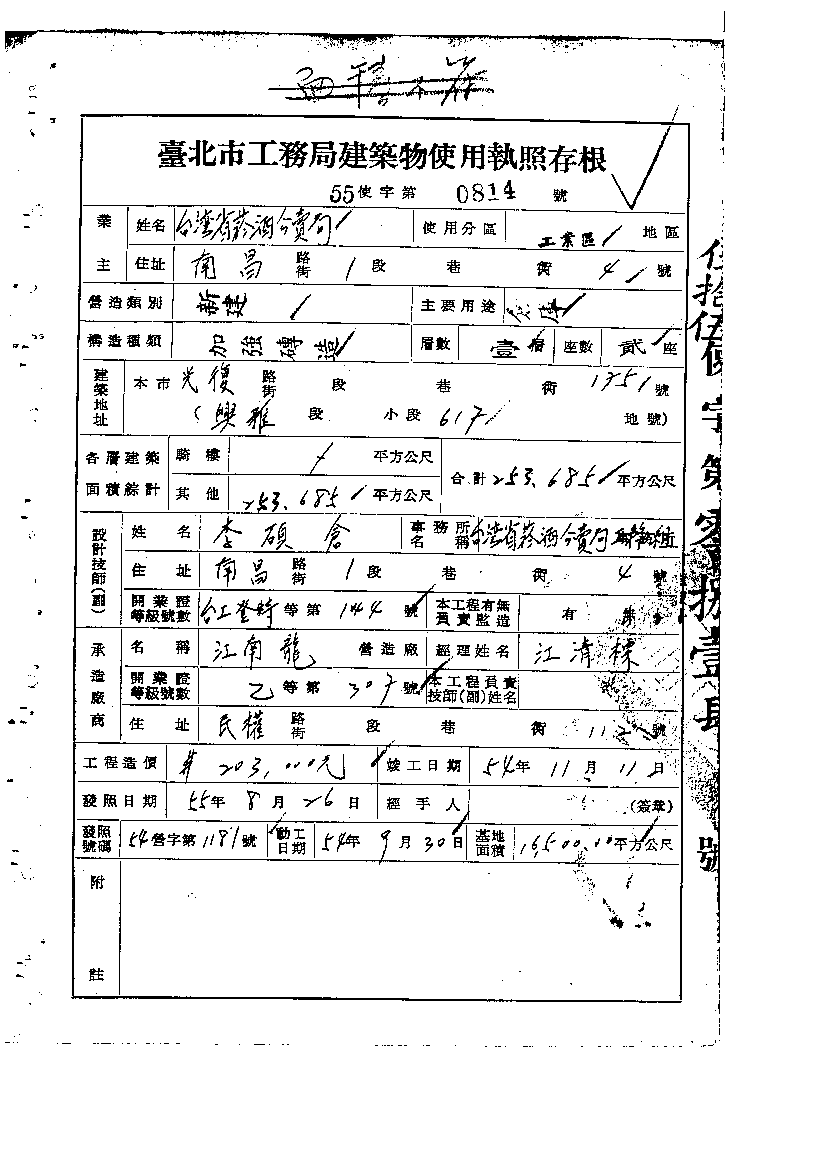 臺北市工務局建築物使用執照存根
55使字第 0814 號
業主 姓名 台灣省菸酒公賣局 使用分區 工業區 地區
住址 南昌 路街 1段 巷 衖 4 號
營造類別 新建 主要用途 倉庫
構造種類 加強磚造 層數 壹層 座數 貳座
建築地址 本市光復 路街 段 巷 衖 號
(興雅段 小段 617 地號)
各層建築面積綜計 騎樓 平方公尺 合計253.685平方公尺
其他 253.685平方公尺
設計技師(副) 姓名 李碩倉 事務所名稱 台灣省菸酒公賣局
住址 南昌 路街 1段 巷 衖 4號
開業證等級號數 台工登 等第 144 號 本工程有無負責監造 有
承造廠商 名稱 江南龍 營造廠 經理姓名 江清樑
開業證等級號數 乙等第 307號 本工程負責技師(副)姓名
住址 民權 路街 段 巷 衖 號
工程造價 203,000元 竣工日期 54年11月11日
發照日期 55年8月26日 經手人 (簽章)
發照號碼 54營字第1181號 動工日期 54年9月30日 基地面積 16,500.00平方公尺
附註
伍拾伍使字第零捌壹肆號